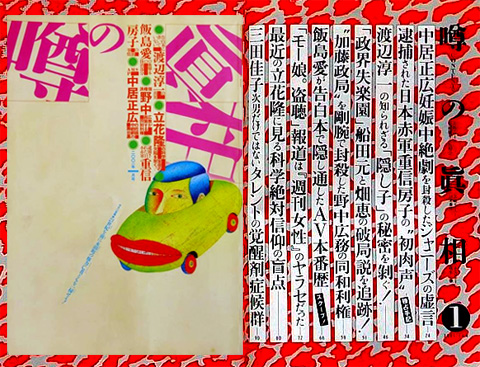 噂の眞相
❶
中居正広妊娠中絶劇を封殺したジャニーズの虚言
逮捕された日本赤軍重信房子の"初肉声"
渡辺淳一の知られざる「隠し子」の秘密を剥ぐ!
「政界失楽園」船田元と畑恵の破局説を追跡!
"加藤政局"を剛腕で封殺した野中広務の同和利権
飯島愛が告白本で隠し通したAV本番歴 スクープ!
「モー娘。盗聴」報道は『週刊女性』のヤラセだった
最近の立花隆に見る科学絶対信仰の盲点
三田佳子次男だけではないタレントの覚醒剤症候群
噂の
眞相
●渡辺淳一●立花隆
飯島愛●野中●重信
房子●中居正広